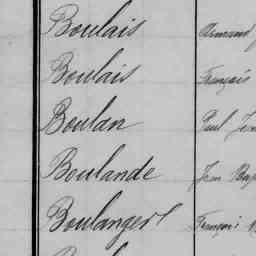 Boulais Armand
Boulais François
Boulan Paul Jean
Boulande Jean Bap
Boulanger François